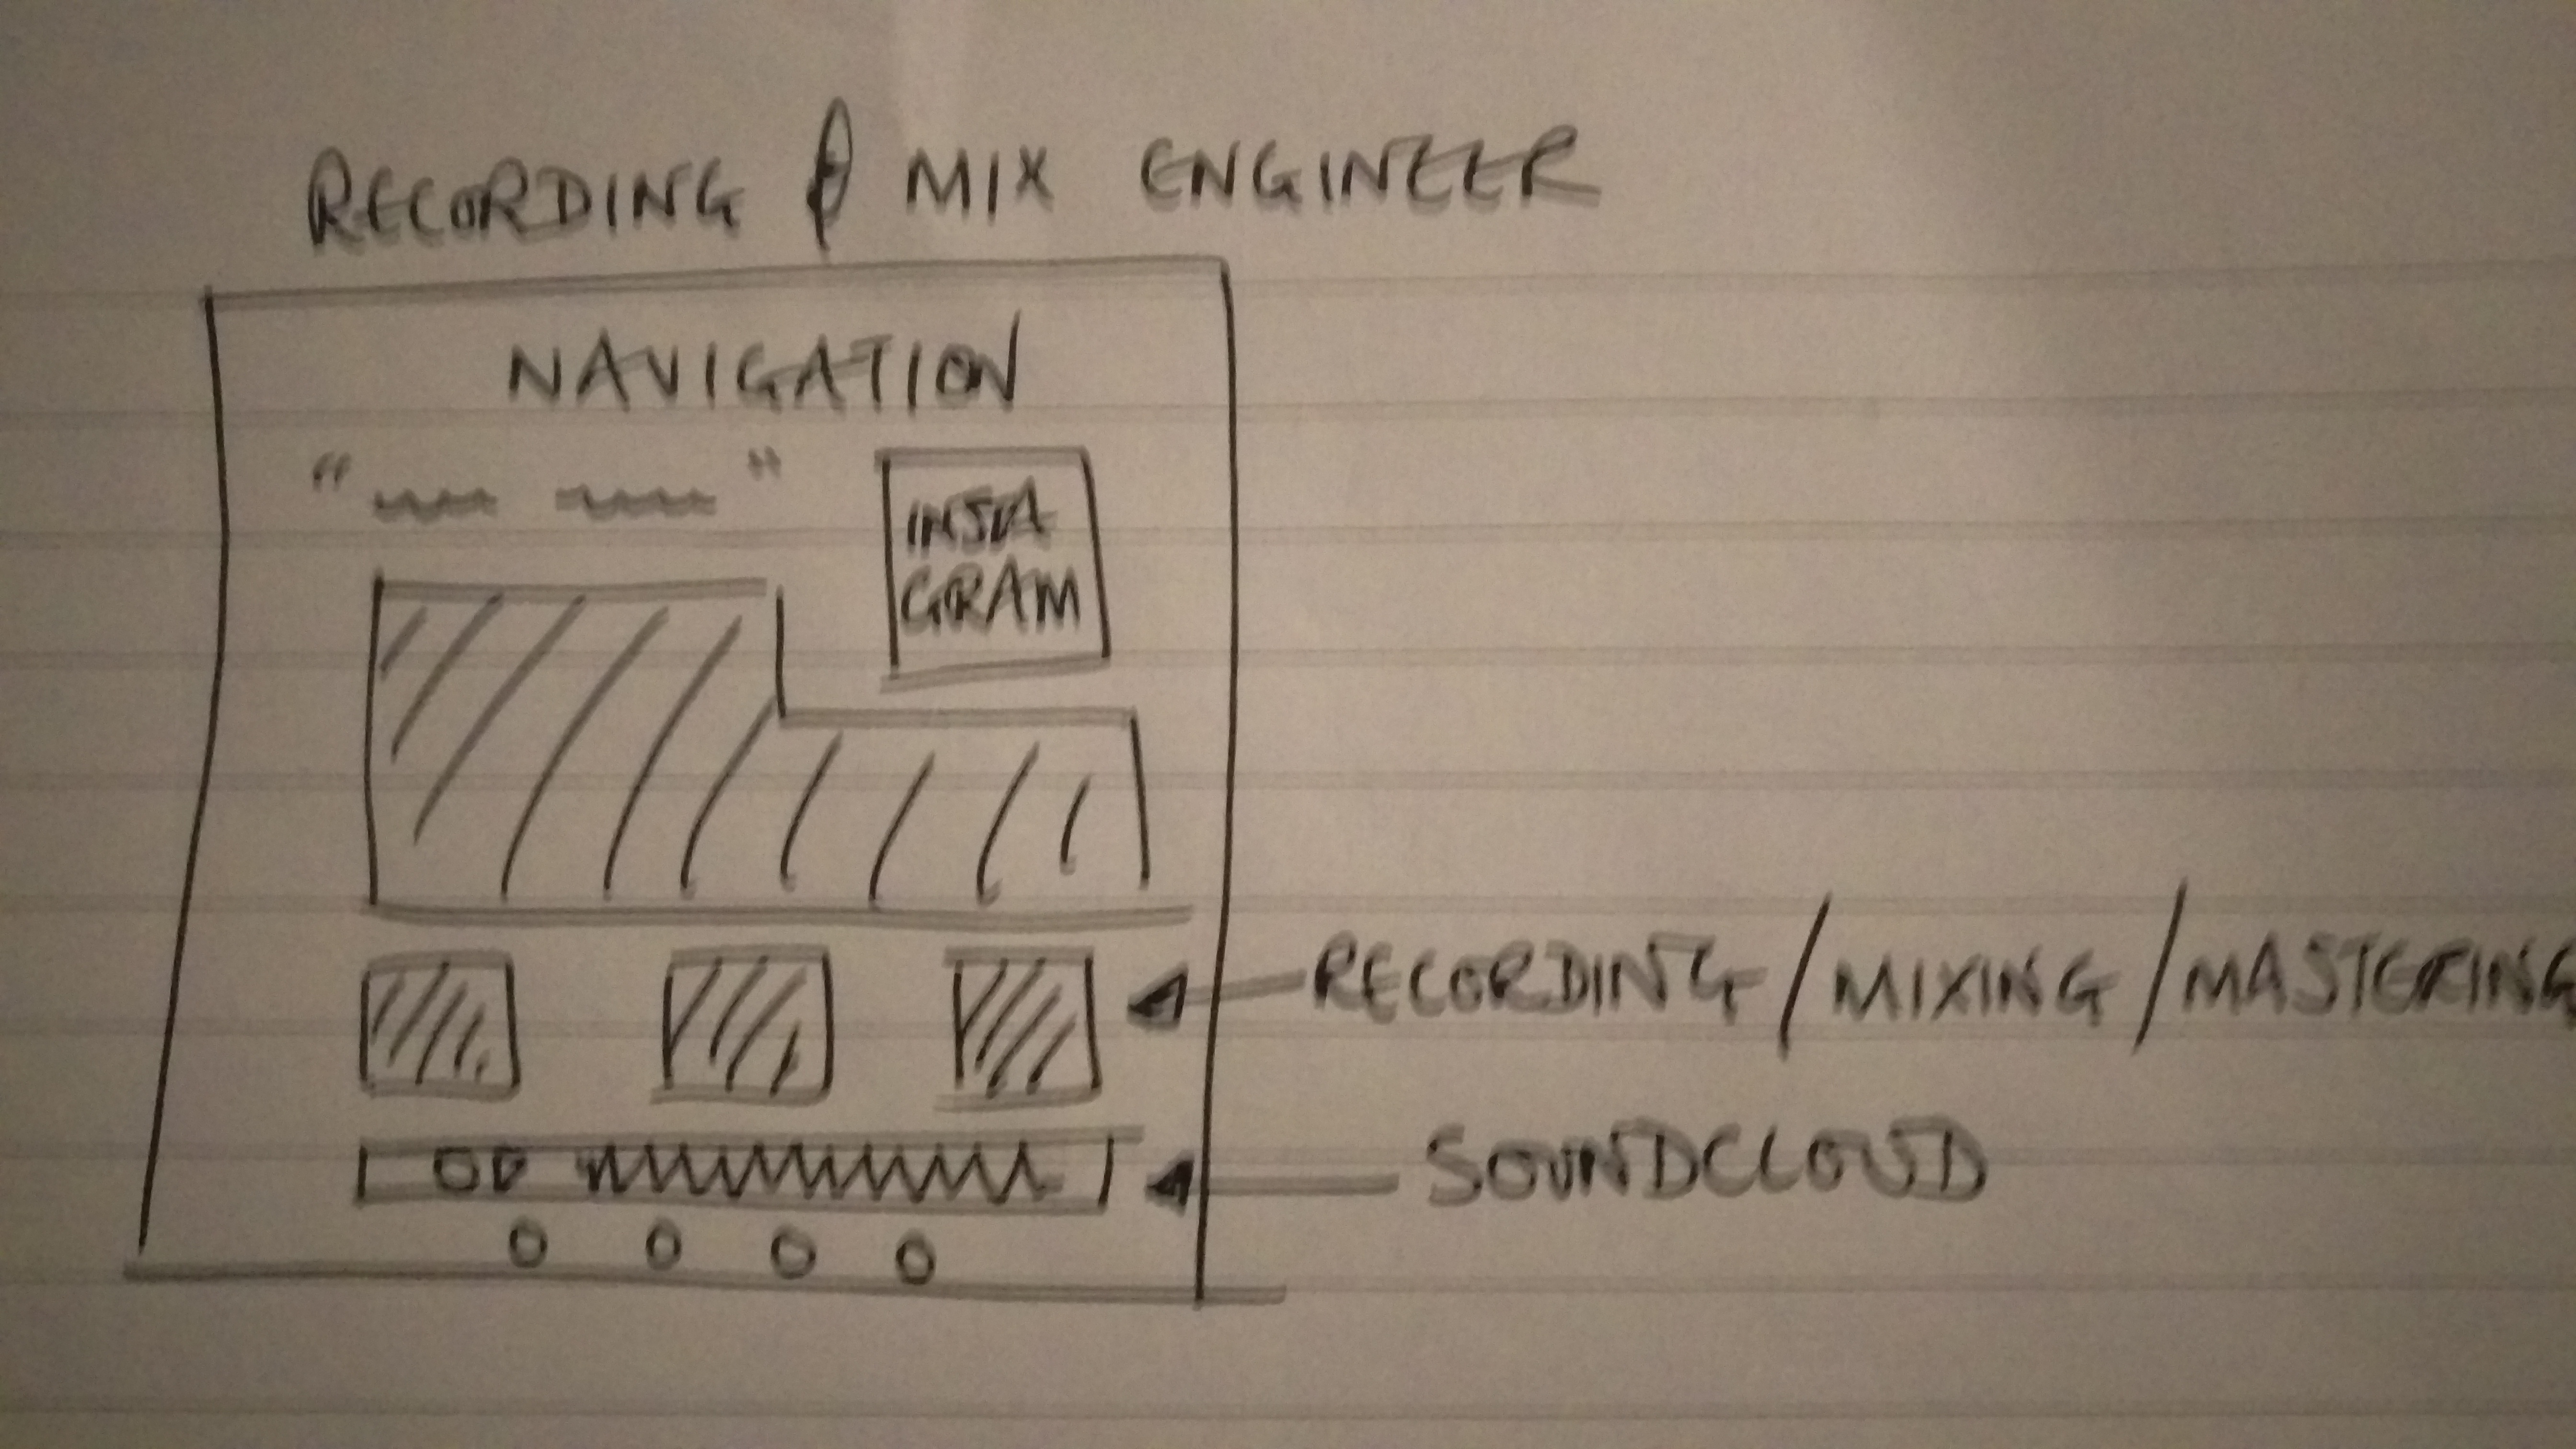 RECORDING & MIX ENGINEER
NAVIGATION
" "
INSTA
GRAM
RECORDING / MIXING / MASTERING
SOUNDCLOUD